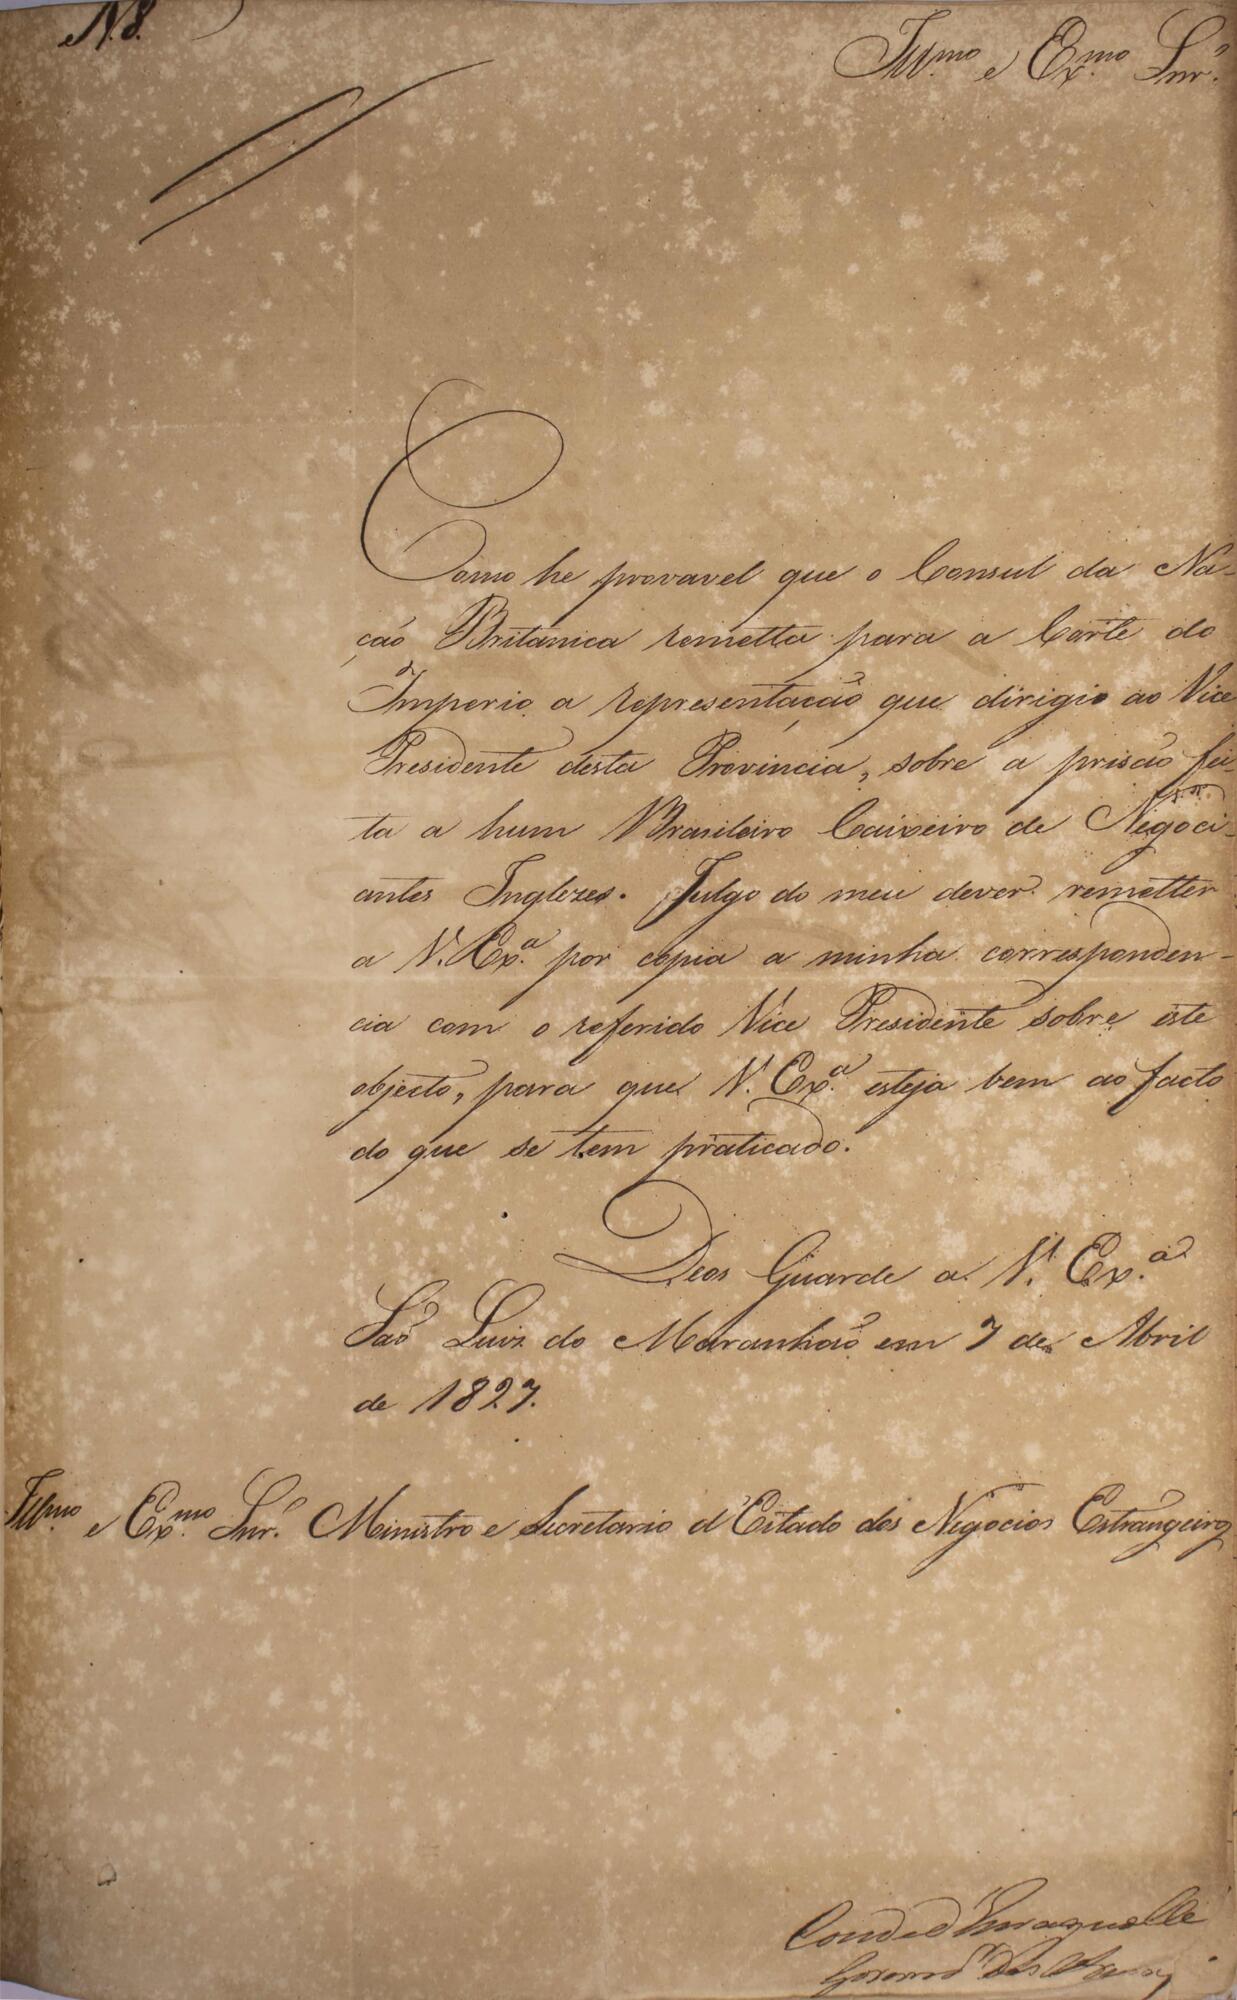 N. 8.
Ill.mo e Ex.mo Snr.
Como he provavel que o Consul da Na-
ção Britanica remetta para a Corte do
Imperio a representação que dirigio ao Vice
Presidente desta Provincia, sobre a prisão fei-
ta a hum Brasileiro Caixeiro de Negoci-
antes Inglezes. Julgo do meu dever remetter
a V. Ex.a por copia a minha corresponden-
cia com o referido Vice Presidente sobre este
objecto, para que V. Ex.a esteja bem ao facto
do que se tem praticado.
Deos Guarde a V. Ex.a
São Luiz do Maranhão em 7 de Abril
de 1827.
Ill.mo e Ex.mo Snr. Ministro e Secretario d'Estado dos Negocios Estrangeiros
Conde d'Escragnolle
Govern.or das Armas